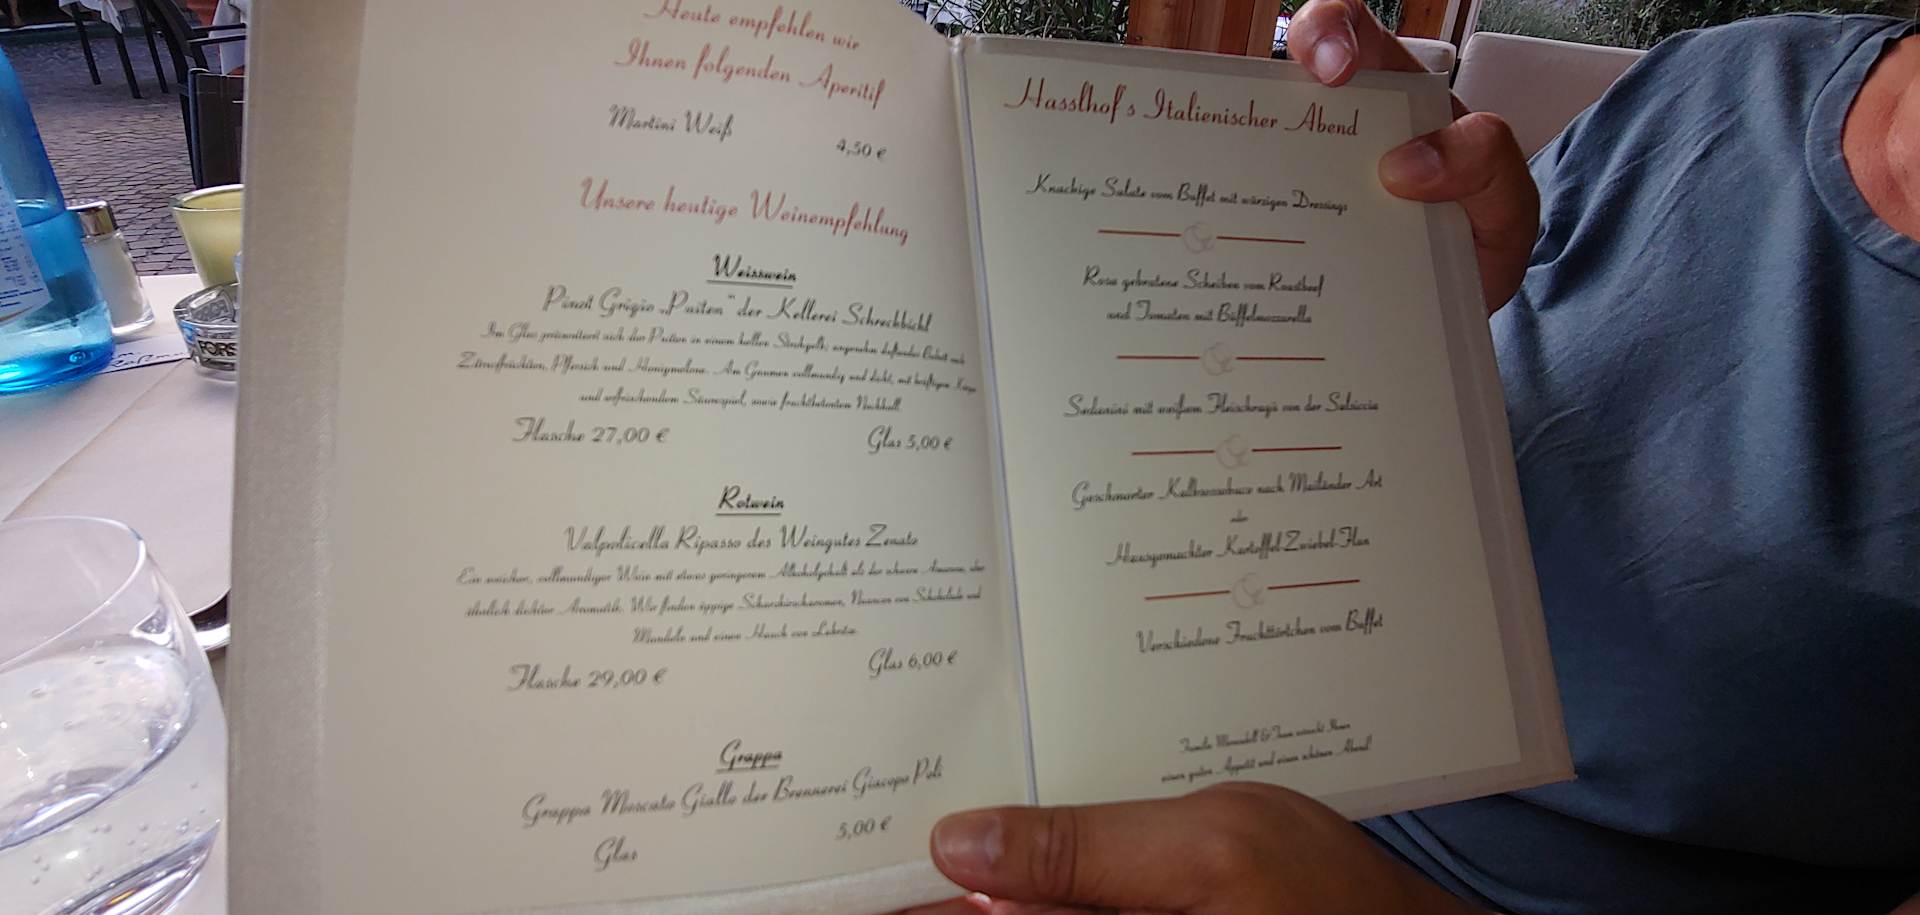 Heute empfehlen wir
Ihnen folgenden Aperitif
Martini Weiß
4,50 €
Unsere heutige Weinempfehlung
Weisswein
Pinot Grigio „Puiten“ der Kellerei Schreckbichl
Im Glas präsentiert sich der Puiten in einem hellen Strohgelb; angenehm duftendes Bukett nach
Zitrusfrüchten, Pfirsich und Honigmelone. Am Gaumen vollmundig und dicht, mit kräftigem
und erfrischendem Säurespiel, sowie fruchtbetontem Nachhall.
Flasche 27,00 €
Glas 5,00 €
Rotwein
Valpolicella Ripasso des Weingutes Zenato
Ein weicher, vollmundiger Wein mit etwas geringerem Alkoholgehalt als der schwere Amarone, aber
ähnlich dichter Aromatik. Wir finden üppige Schwarzkirscharomen, Nuancen von Schokolade und
Mandeln und einen Hauch von Lakritze.
Flasche 29,00 €
Glas 6,00 €
Grappa
Grappa Moscato Giallo der Brennerei Giacopo Poli
Glas
5,00 €
Hasslhof's Italienischer Abend
Knackige Salate vom Buffet mit würzigen Dressings
Rosa gebratene Scheiben vom Roastbeef
und Tomaten mit Büffelmozzarella
Sedanini mit weißem Fleischragù von der Salsiccia
Geschmorter Kalbsossobuco nach Mailänder Art
oder
Hausgemachter Kartoffel-Zwiebel-Flan
Verschiedene Fruchttörtchen vom Buffet
Familie & Team wünscht Ihnen
einen guten Appetit und einen schönen Abend!
FORS